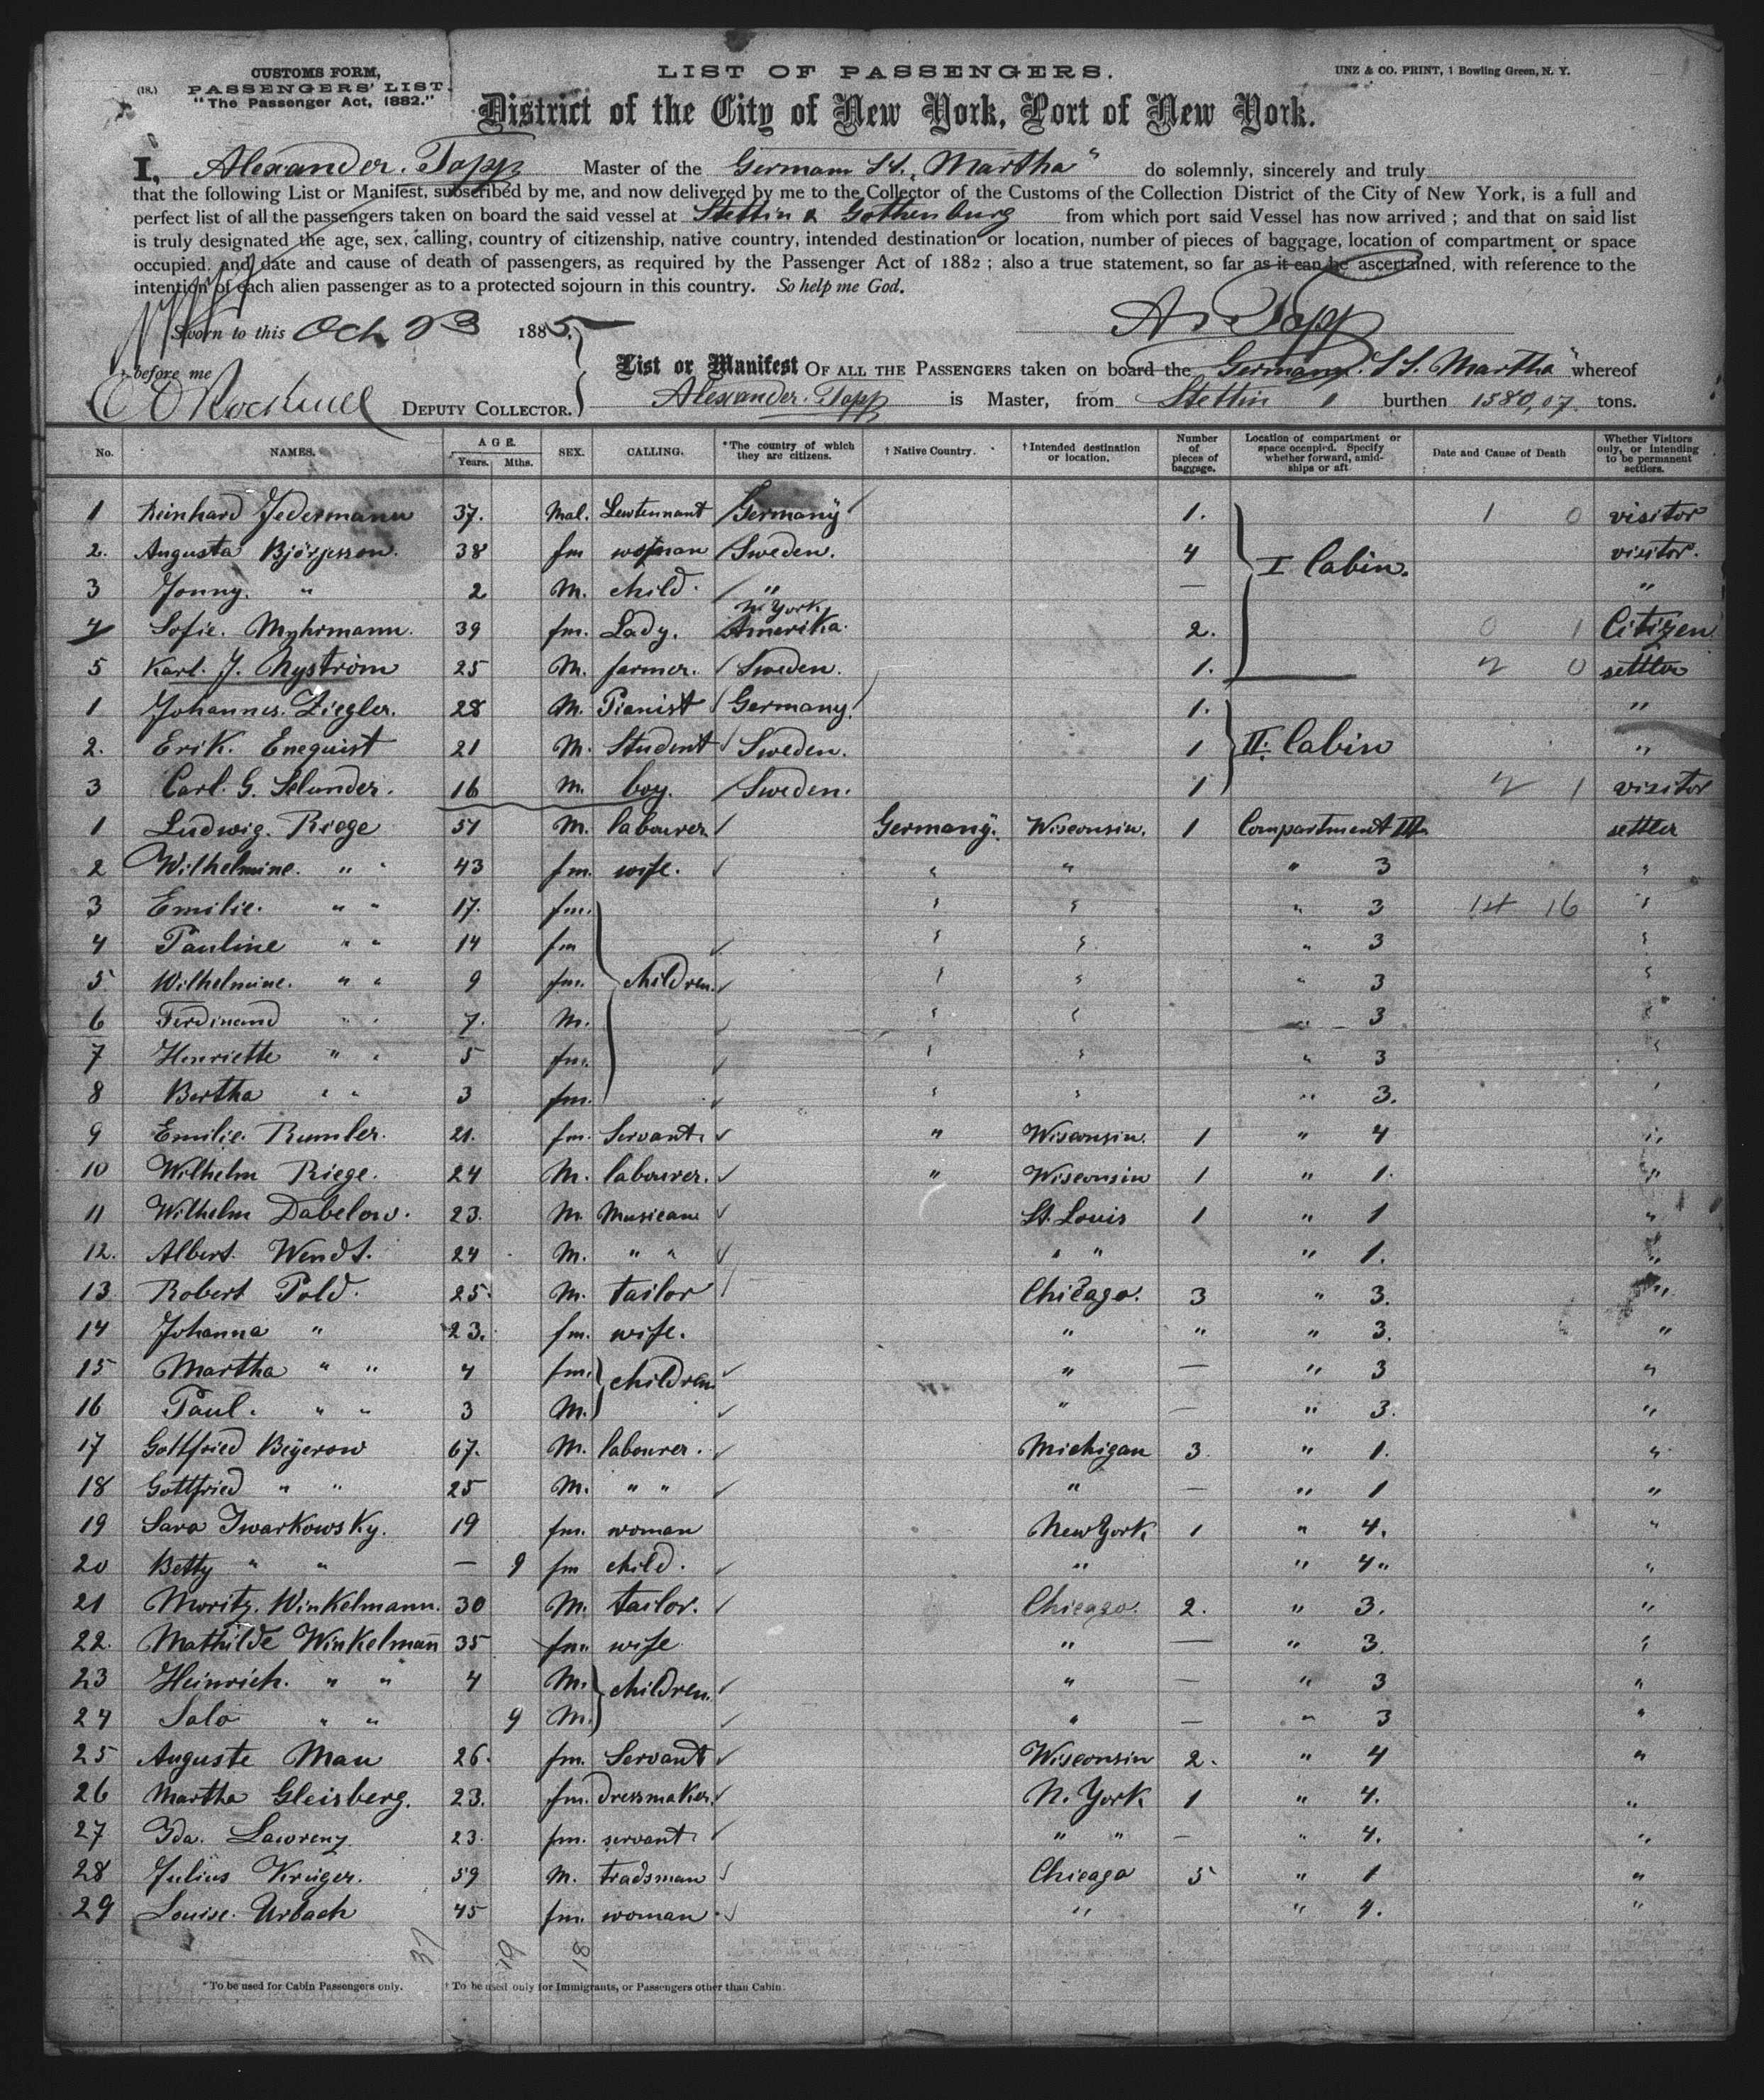 CUSTOMS FORM,
(18.) PASSENGERS' LIST.
"The Passenger Act, 1882."
LIST OF PASSENGERS.
UNZ & CO. PRINT, 1 Bowling Green, N. Y.
District of the City of New York, Port of New York.
I, Alexander. Topp Master of the German SS. „Martha" do solemnly, sincerely and truly
that the following List or Manifest, subscribed by me, and now delivered by me to the Collector of the Customs of the Collection District of the City of New York, is a full and
perfect list of all the passengers taken on board the said vessel at Stettin & Gothenburg from which port said Vessel has now arrived ; and that on said list
is truly designated the age, sex, calling, country of citizenship, native country, intended destination or location, number of pieces of baggage, location of compartment or space
occupied, and date and cause of death of passengers, as required by the Passenger Act of 1882 ; also a true statement, so far as it can be ascertained, with reference to the
intention of each alien passenger as to a protected sojourn in this country. So help me God.
A. Topp
Sworn to this Oct 23 1885.
before me
DEPUTY COLLECTOR.
List or Manifest OF ALL THE PASSENGERS taken on board the German. SS. Martha" whereof
Alexander. Topp is Master, from Stettin burthen 1580,07. tons.
No. NAMES. AGE. Years. Mths. SEX. CALLING. *The country of which they are citizens. † Native Country. † Intended destination or location. Number of pieces of baggage. Location of compartment or space occupied. Specify whether forward, amidships or aft Date and Cause of Death Whether Visitors only, or intending to be permanent settlers.
1 Reinhard Jedermann 37. Mal. Lewtennant Germany 1. 1 0 visitor
2. Augusta 38 fm woman Sweden. 4 I Cabin. visitor.
3 Jonny. " 2 M. child. " — "
4 Sofie. Myhrmann. 39 fm. Lady. N. York, Amerika. 2. 0 1 Citizen
5 Karl. J. Nyström 25 M. farmer. Sweden. 1. 2 0 settler
1 Johannes. Ziegler. 28 M. Pianist Germany. 1. "
2. Erik. Enequist 21 M. Student Sweden. 1 II. Cabin "
3 Carl. G. Selander. 16 M. boy. Sweden. 1 2 1 visitor
1 Ludwig. Riege 51 M. labourer Germany. Wisconsin. 1 Compartment III settler
2 Wilhelmine. " " 43 fm. wife. " " " 3 "
3 Emilie. " " 17. fm. " " " 3 14 16 "
4 Pauline " " 14 fm " " " 3 "
5 Wilhelmine. " " 9 fm. children. " " " 3 "
6 Ferdinand " " 7. M. " " " 3 "
7 Henriette " " 5 fm. " " " 3 "
8 Bertha " " 3 fm. " " " 3. "
9 Emilie. Rumler. 21. fm. Servant. " Wisconsin. 1 " 4 "
10 Wilhelm Riege. 24 M. labourer. " Wisconsin 1 " 1. "
11 Wilhelm Dabelow. 23. M. Musican St. Louis 1 " 1 "
12. Albert. Wendt. 24 M. " " " " " 1. "
13 Robert Pold. 25. M. tailor Chicago. 3 " 3. "
14 Johanna " 23. fm. wife. " " " 3. "
15 Martha " " 4 fm. children " — " 3 "
16 Paul. " " 3 M. " — " 3. "
17 Gottfried Beyerow 67. M. labourer. Michigan 3. " 1. "
18 Gottfried " " 25 M. " " " — " 1 "
19 Sara Iwarkowsky. 19 fm. woman New York 1 " 4. "
20 Betty " " — 9 fm child. " " 4 "
21 Moritz. Winkelmann. 30 M. tailor. Chicago. 2. " 3. "
22. Mathilde Winkelmañ 35 fm. wife " — " 3. "
23 Heinrich. " " 4 M. children. " — " 3 "
24 Salo " " 9 M. " — " 3 "
25 Auguste Mau 26. fm. Servant Wisconsin 2. " 4 "
26 Martha Gleisberg. 23. fm. dressmaker. N. York 1 " 4. "
27 Ida. Lawrenz 23. fm. servant. " " — " 4. "
28 Julius Krüger. 59 M. tradsman Chicago 5 " 1 "
29 Louise. Urbach 45 fm. woman " " 4. "
37 19 18
*To be used for Cabin Passengers only. † To be used only for Immigrants, or Passengers other than Cabin.